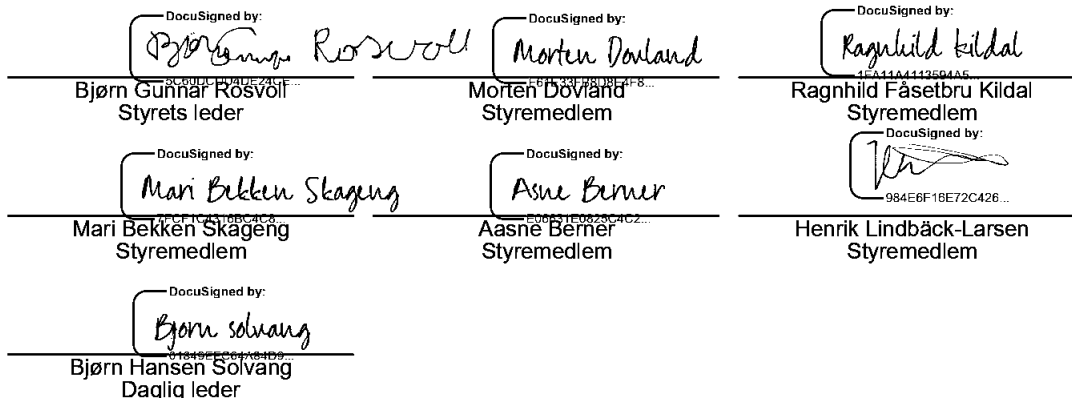 DocuSigned by:
Bjørn Gunnar Rosvoll
Bjørn Gunnar Rosvoll
Styrets leder
DocuSigned by:
Morten Dovland
Morten Dovland
Styremedlem
DocuSigned by:
Ragnhild kildal
1FA11A4113594A5...
Ragnhild Fåsetbru Kildal
Styremedlem
DocuSigned by:
Mari Bekken Skageng
7FCF1C4316BC4C8...
Mari Bekken Skageng
Styremedlem
DocuSigned by:
Asne Berner
E06631E0825C4C2...
Aasne Berner
Styremedlem
DocuSigned by:
984E6F16E72C426...
Henrik Lindbäck-Larsen
Styremedlem
DocuSigned by:
Bjorn solvang
Bjørn Hansen Solvang
Daglig leder